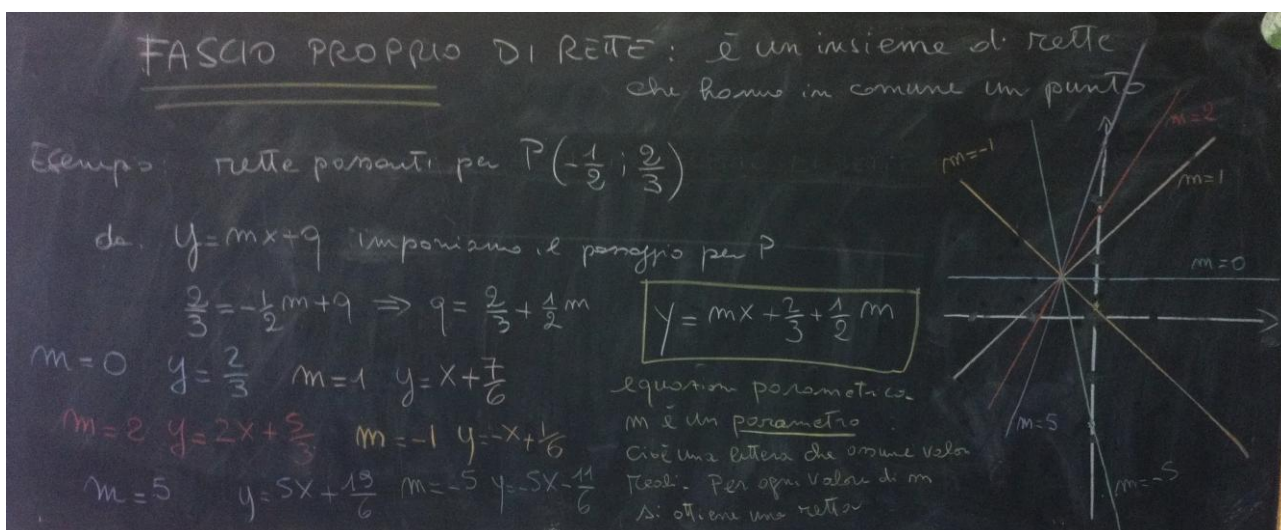 FASCIO PROPRIO DI RETTE: è un insieme di rette
che hanno in comune un punto
Esempio: rette passanti per P(-1/2; 2/3)
da y=mx+q imponiamo il passaggio per P
2/3=-1/2m+q ⇒ q=2/3+1/2m
y=mx+2/3+1/2m
m=0 y=2/3 m=1 y=x+7/6
m=2 y=2x+5/3 m=-1 y=-x+1/6
m=5 y=5x+19/6 m=-5 y=-5x-11/6
equazion parametrica
m è un parametro
cioè una lettera che assume valori
reali. Per ogni valore di m
si ottiene una retta
m=2
m=-1
m=1
m=0
m=5
m=-5